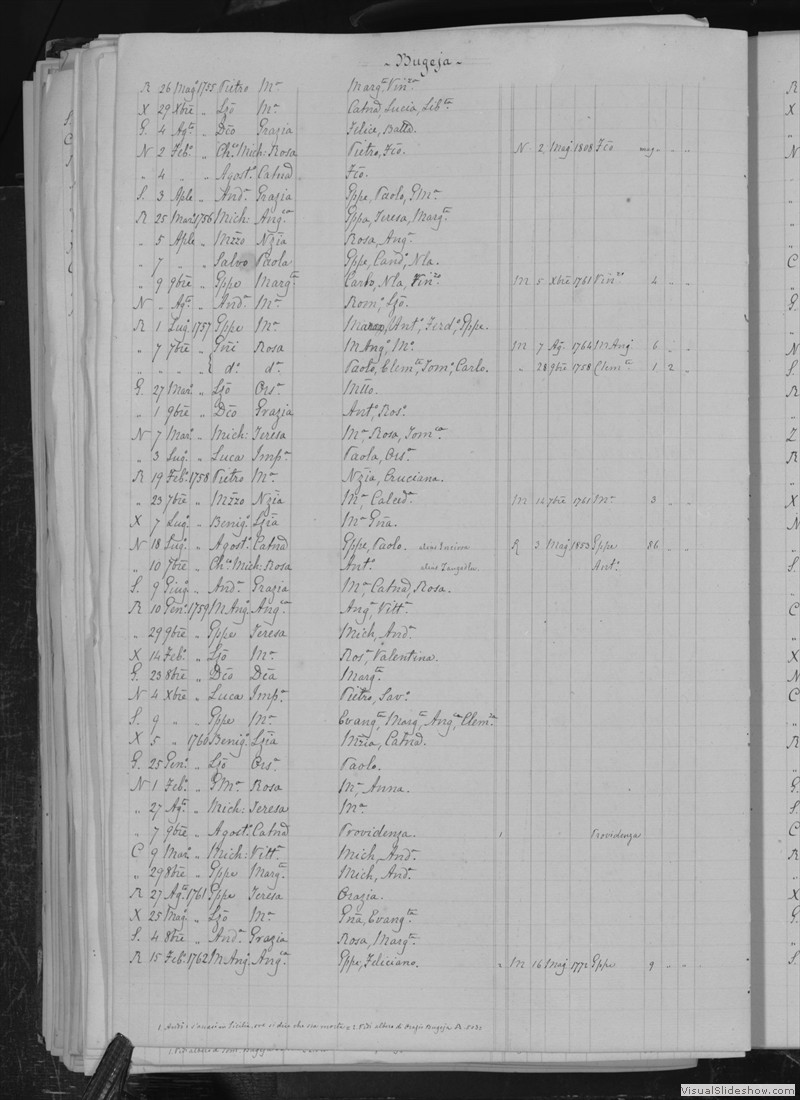 - Bugeja -
R 26 Mag.º 1755 Pietro M.ª Marg.ta Vin.za
X 29 Xbre " Lzõ M.ª Catnã, Lucia, Lib.ta
G. 4 Ag.to " Dcõ Grazia Felice, Batta.
N 2 Feb.º " Ch.º Mich: Rosa Pietro, Fcõ. N 2 Mag 1808 Fcõ
" 4 " " Agost.º Catnã Fcõ.
S. 3 Aple " And.ª Grazia Gppe, Paolo, GM.ª
R 25 Mar.º 1756 Mich: Ang.ca Gppa, Teresa, Marg.ta
" 5 Aple " Mzzo Nzia Rosa, Ang.
" 7 " " Salvo Paola Gppe, Cand.º, Nla.
" 9 9bre " Gppe Marg.ta Carlo, Nla, Vin.zo M 5 Xbre 1761 Vin.zo 4 " "
N " Ag.to " And.ª M.ª Rom.º, Lzõ.
R 1 Lug.º 1757 Gppe M.ª Ant.º, Ferd.º, Gppe.
" 7 7bre " Gñi Rosa M Ang.º, M.ª M 7 Ag.º 1764 M Ang 6 " "
" " " " d.º d.ª Paolo, Clem.te, Tom.º, Carlo. " 28 9bre 1758 Clem.te 1 2 "
G. 27 Mar.º " Lzõ Ors.ª Mtto.
" 1 9bre " Dcõ Grazia Ant.º, Ros.º
N 7 Mar.º " Mich: Teresa M.ª Rosa, Tom.ca
" 3 Lug.º " Luca Imp.ª Paola, Ors.ª
R 19 Feb.º 1758 Pietro M.ª Nzia, Cruciana.
" 23 7bre " Mzzo Nzia M.ª, Calced.ª M 14 7bre 1761 M.ª 3 " "
X 7 Lug.º " Benig.º Lzia M.ª Gña.
N 18 Lug.º " Agost.º Catnã Gppe, Paolo. alias R 3 Mag 1853 Gppe 86 " "
" 10 7bre " Ch.º Mich: Rosa Ant.º alias Ant.º
S. 9 Giug.º " And.ª Grazia M.ª, Catnã, Rosa.
R 10 Gen.º 1759 M Ang.º Ang.ca Ang.ª, Vitt.ª
" 29 9bre " Gppe Teresa Mich, And.ª
X 14 Feb.º " Lzõ M.ª Ros.ª, Valentina.
G. 23 8bre " Dcõ Dcã Marg.ta
N 4 Xbre " Luca Imp.ª Pietro, Sav.º
S. 9 " " Gppe M.ª Evang.ta, Marg.ta, Ang.ca, Clem.za
X 5 " 1760 Benig.º Lzia Mzia, Catnã.
G. 25 Gen.º " Lzõ Ors.ª Paolo.
N 1 Feb.º " GM.ª Rosa M.ª, Anna.
" 27 Ag.to " Mich: Teresa M.ª
" 7 9bre " Agost.º Catnã Providenza. 1 Providenza
C 9 Mar.º " Mich: Vitt.ª Mich, And.ª
" 29 8bre " Gppe Marg.ta Mich, And.ª
R 27 Ag.to 1761 Gppe Teresa Orazia.
X 25 Mag.º " Lzõ M.ª Gña, Evang.ta
S. 4 8bre " And.ª Grazia Rosa, Marg.ta
R 15 Feb.º 1762 M Ang.º Ang.ca Gppe, Feliciano. 2 M 16 Mag 1772 Gppe 9 " "
VisualSlideshow.com